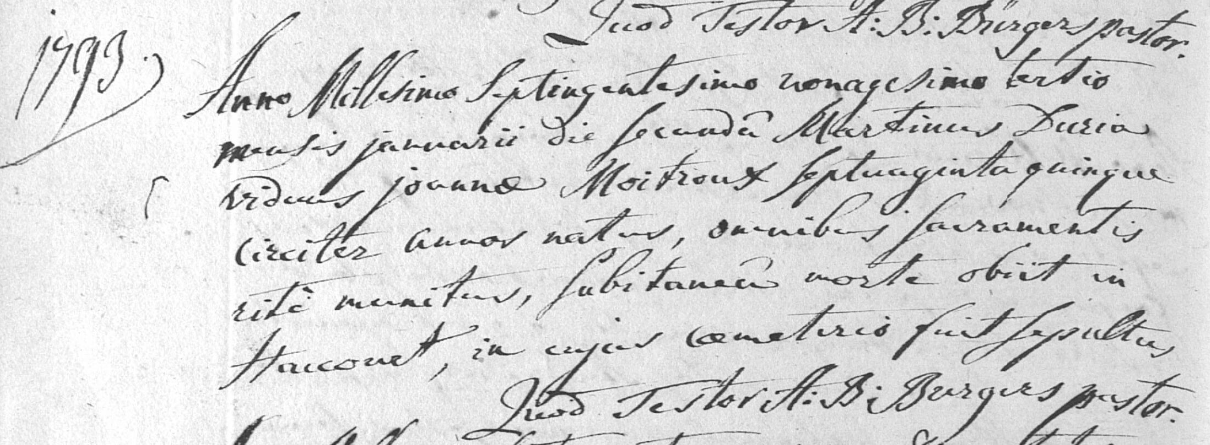 Quod Testor A: B: Bürgers pastor.
1793.
Anno Millesimo Septingentesimo nonagesimo tertio
mensis januarii die secundâ Martinus Duria
viduus joannæ Moitroux septuaginta quinque
circiter annos natus, omnibus sacramentis
ritè munitus, subitaneâ morte obiit in
Haccourt, in cujus cœmeterio fuit sepultus,
Quod Testor A: B: Burgers pastor.